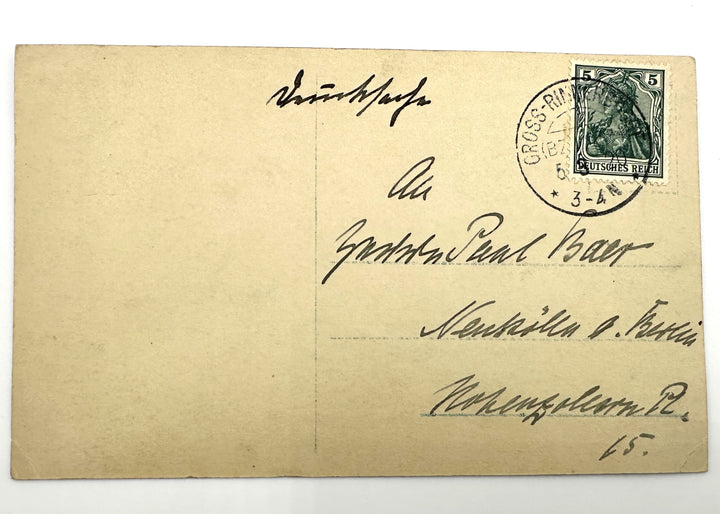 Drucksache
5 5
DEUTSCHES REICH
GROSS-RIN
(BZ
3-4 N
An
Paul Baer
Neukölln b. Berlin
Hohenzollern Pl.
15.